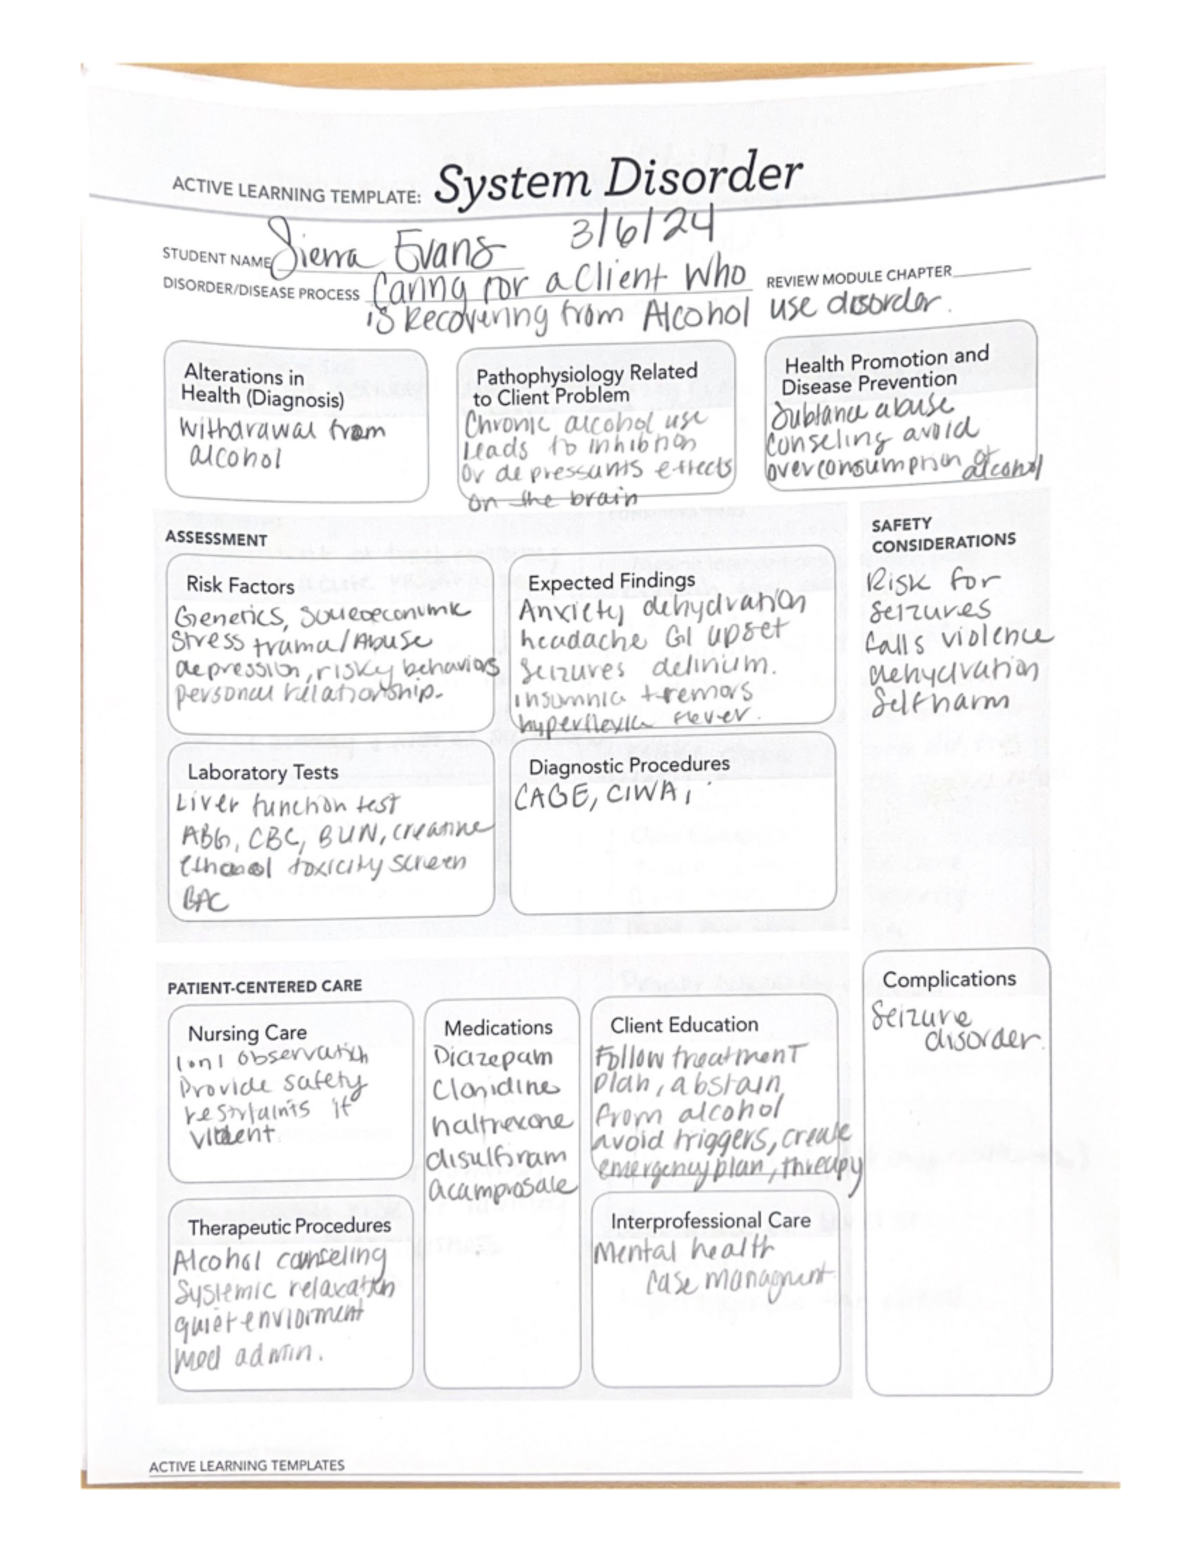 ACTIVE LEARNING TEMPLATE: System Disorder
STUDENT NAME Sierra Evans 3/6/24
DISORDER/DISEASE PROCESS Caring for a Client Who REVIEW MODULE CHAPTER
is Recovering from Alcohol use disorder.
Alterations in
Health (Diagnosis)
Withdrawal from
alcohol
Pathophysiology Related
to Client Problem
Chronic alcohol use
leads to inhibition
or depressants effects
on the brain
Health Promotion and
Disease Prevention
Subtance abuse
conseling avoid
overconsumption of
alcohol
ASSESSMENT
Risk Factors
Genetics,
Stress trama/Abuse
depression, risky behaviors
personal relationship.
Expected Findings
Anxiety dehydration
headache GI upset
Seizures delirium.
insomnia tremors
fever.
Laboratory Tests
Liver function test
ABG, CBC, BUN,
ethanol toxicity screen
BAC
Diagnostic Procedures
CAGE, CIWA,
SAFETY
CONSIDERATIONS
Risk for
seizures
falls violence
dehydration
Selfharm
PATIENT-CENTERED CARE
Nursing Care
1 on 1 observation
Provide safety
restraints if
violent
Medications
Diazepam
Clonidine
naltrexone
disulfiram
acamprosate
Client Education
Follow treatment
plan, abstain
from alcohol
avoid triggers, create
emergency plan, threapy
Therapeutic Procedures
Alcohol counseling
Systemic relaxation
quiet enviorment
med admin.
Interprofessional Care
Mental health
case managment
Complications
Seizure
disorder.
ACTIVE LEARNING TEMPLATES